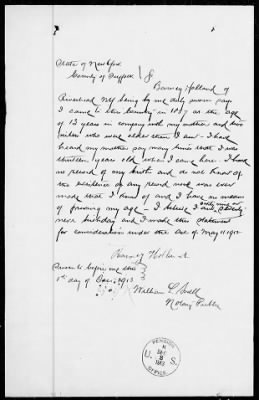 State of New York
County of Suffolk } S
Barney Holland of
Riverhead NY being by me duly sworn says
I came to this country in 1847 at the age
of 13 years in company with my mother and two
sisters who were older than I am - I had
heard my mother say many times that I was
thirteen years old when I came here. I have
no record of my birth and do not know of
the existence of any record nor was ever
made that I know of and I have no means
of proving my age - I believe I
next birthday and I make this statement
for consideration under the Act of May 11 1912
Barney Holland
Sworn to before me this
1st day of 1913
William L
Notary Public
PENSION
U. S.
OFFICE